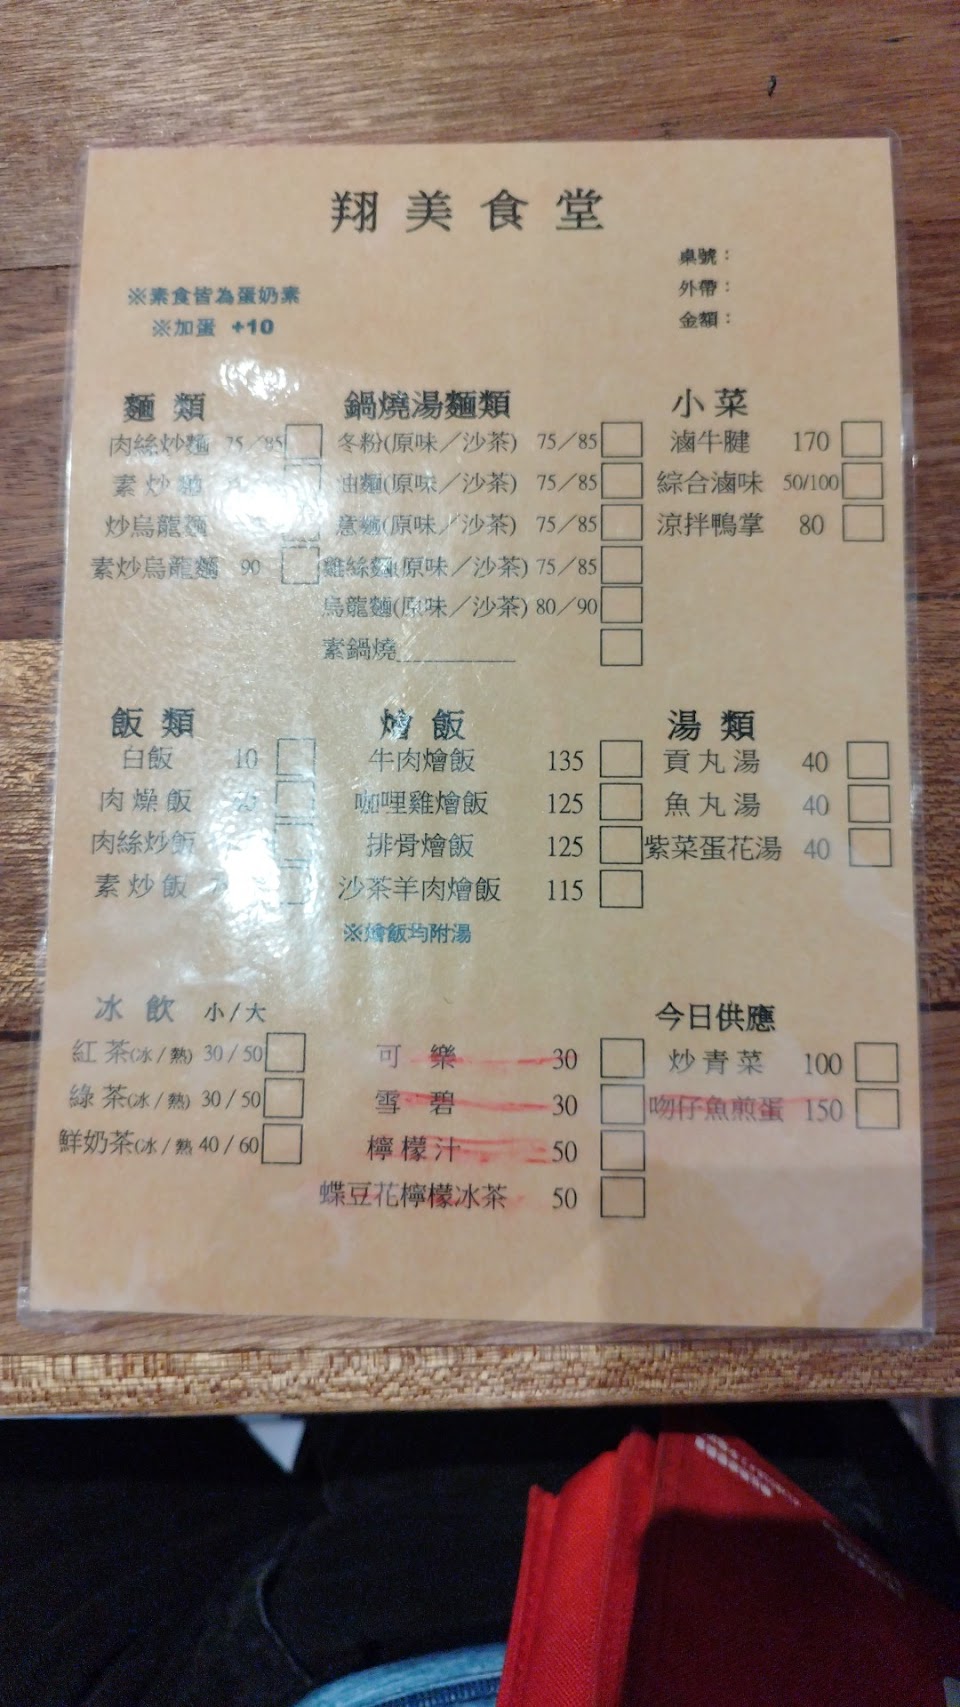 翔美食堂
桌號：
外帶：
金額：
※素食皆為蛋奶素
※加蛋 +10
麵類
肉絲炒麵 75／85
素炒麵
炒烏龍麵
素炒烏龍麵 90
鍋燒湯麵類
冬粉(原味／沙茶) 75／85
油麵(原味／沙茶) 75／85
意麵(原味／沙茶) 75／85
雞絲麵(原味／沙茶) 75／85
烏龍麵(原味／沙茶) 80／90
素鍋燒__________
小菜
滷牛腱 170
綜合滷味 50/100
涼拌鴨掌 80
飯類
白飯 10
肉燥飯
肉絲炒飯
素炒飯
燴飯
牛肉燴飯 135
咖哩雞燴飯 125
排骨燴飯 125
沙茶羊肉燴飯 115
※燴飯均附湯
湯類
貢丸湯 40
魚丸湯 40
紫菜蛋花湯 40
冰飲 小/大
紅茶(冰/熱) 30/50
綠茶(冰/熱) 30/50
鮮奶茶(冰/熱 40/60
可樂 30
雪碧 30
檸檬汁 50
蝶豆花檸檬冰茶 50
今日供應
炒青菜 100
吻仔魚煎蛋 150